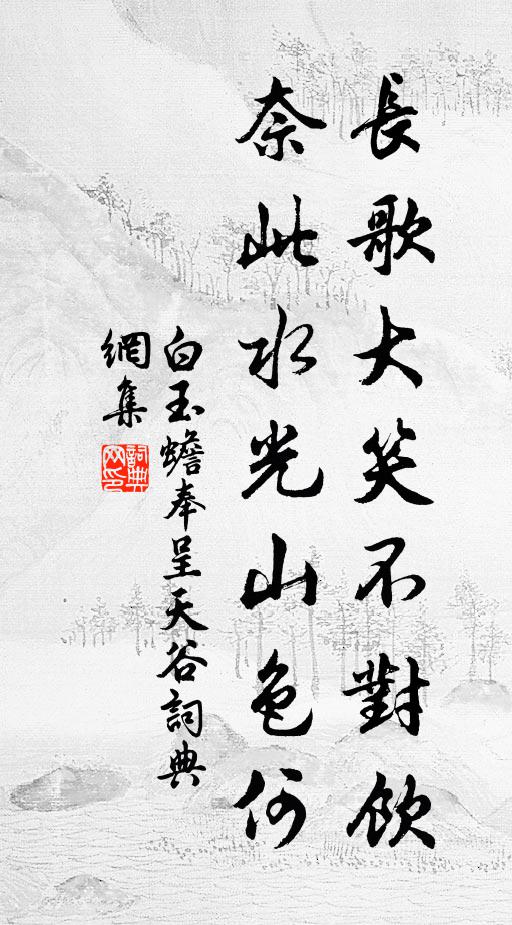 長歌大笑不對飲
奈此水光山色何
白玉蟾奉呈天谷詞典
網集
詞典網印